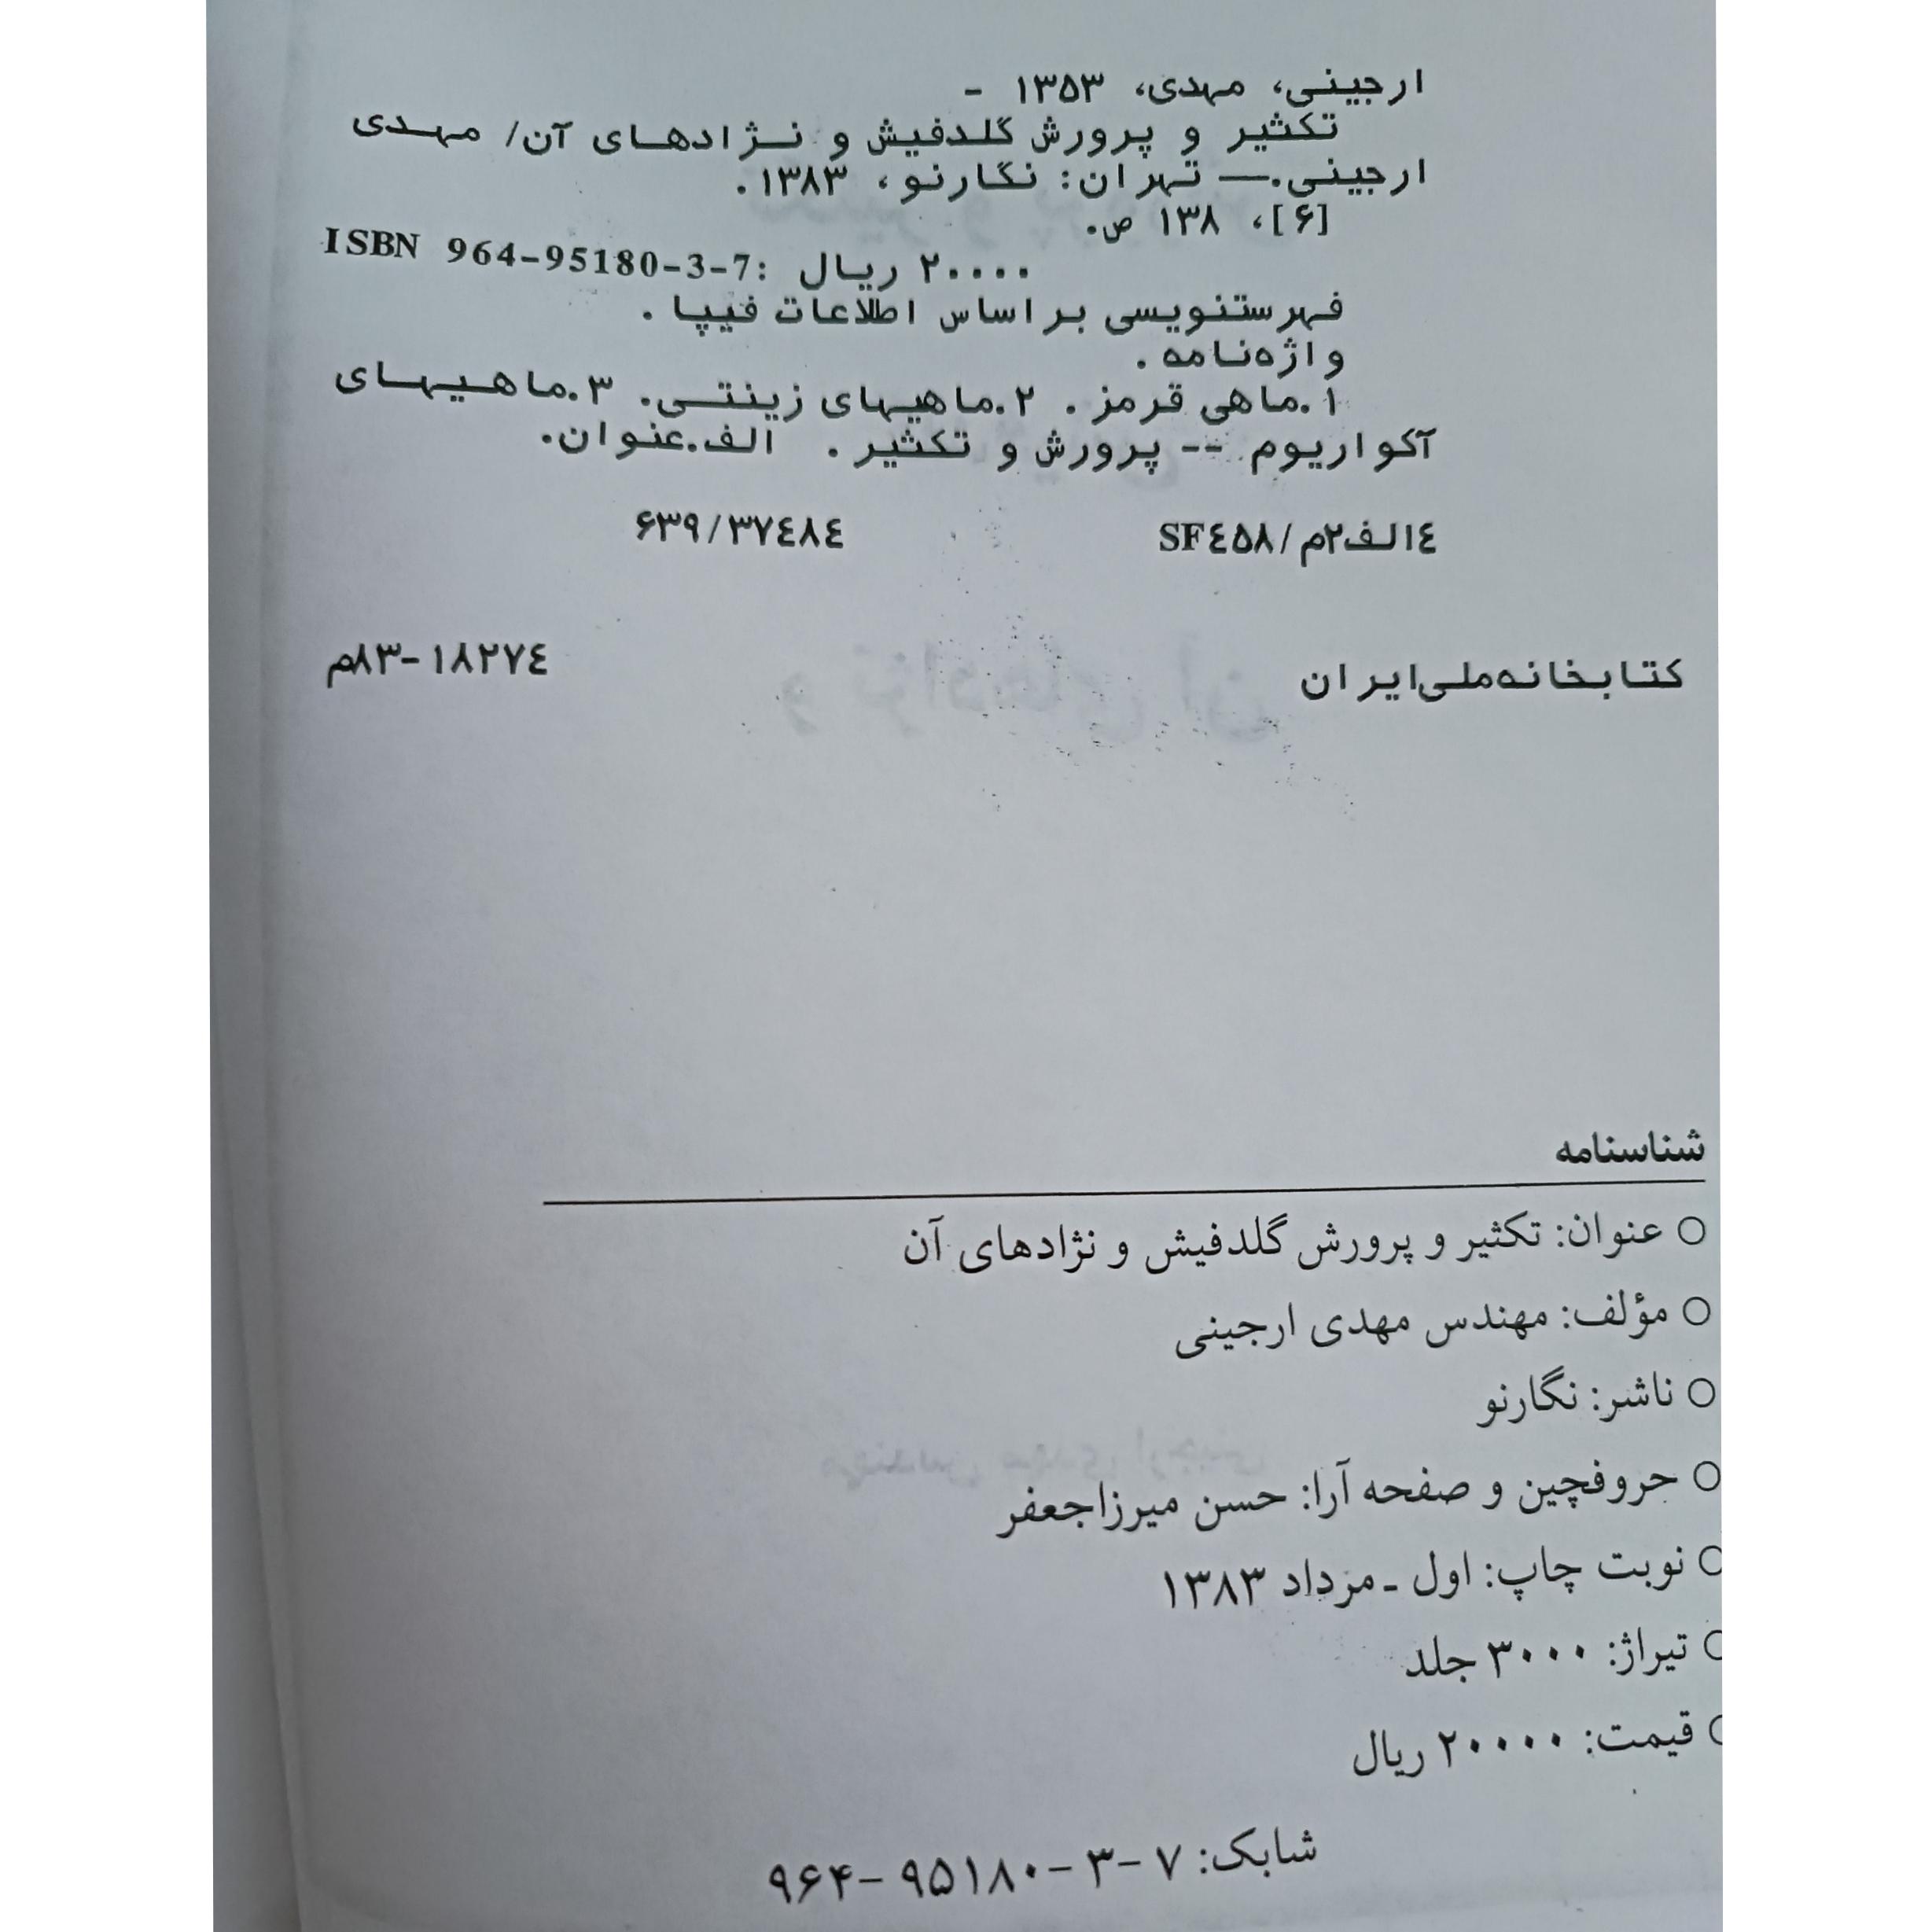 ارجینی، مهدی، ۱۳۵۳ -
تکثیر و پرورش گلدفیش و نژادهای آن/ مهدی
ارجینی.— تهران: نگارنو، ۱۳۸۳.
[۶]، ۱۳۸ ص.
ISBN 964-95180-3-7: ۲۰۰۰۰ ریال
فهرستنویسی براساس اطلاعات فیپا.
واژه‌نامه.
۱.ماهی قرمز. ۲.ماهیهای زینتی. ۳.ماهیهای
آکواریوم -- پرورش و تکثیر. الف.عنوان.
۴الف۲م/SF۴۵۸ ۶۳۹/۳۷۴۸۴
کتابخانه‌ملی‌ایران ۱۸۲۷۴-۸۳م
شناسنامه
○ عنوان: تکثیر و پرورش گلدفیش و نژادهای آن
○ مؤلف: مهندس مهدی ارجینی
○ ناشر: نگارنو
○ حروفچین و صفحه آرا: حسن میرزاجعفر
○ نوبت چاپ: اول ـ مرداد ۱۳۸۳
○ تیراژ: ۳۰۰۰ جلد
○ قیمت: ۲۰۰۰۰ ریال
شابک: ۷-۳-۹۵۱۸۰-۹۶۴